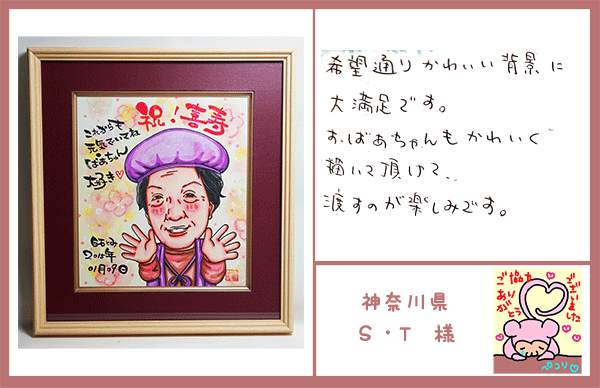 祝!喜寿
これからも
元気でいてね
ばあちゃん
大好き
2015年
01月09日
希望通りかわいい背景に
大満足です。
おばあちゃんもかわいく
描いて頂けて、
渡すのが楽しみです。
神奈川県
S・T 様
ご協力
ありがとう
ございました
ペコリ